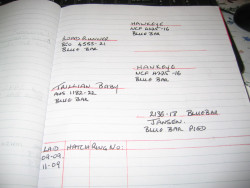 HAWKEYE
NCF H225-16
BLUE BAR
ROAD RUNNER
BLUE BAR
HAWKEYE
NCF H225-16
BLUE BAR
TRILLIAN BABY
ANG 1182-22
BLUE BAR
2136-18 BLUEBAR
JANSEN.
BLUE BAR PIED
LAD HATCH RING NO:
09-09
11-09